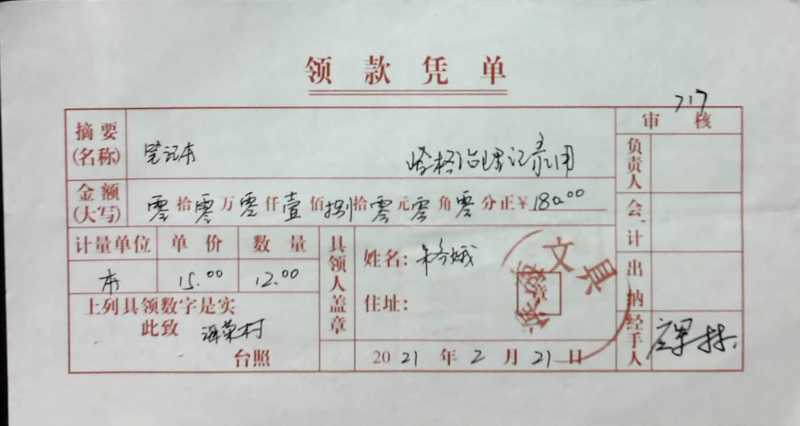 领款凭单
717
审核
摘要(名称) 笔记本 记录用
金额(大写) 零拾零万零仟壹佰捌拾零元零角零分正¥180.00
计量单位 单价 数量
本 15.00 12.00
上列具领数字是实
此致 村
台照
具领人盖章
姓名:
住址:
2021年2月21日
文具
负责人
会计
出纳
经手人